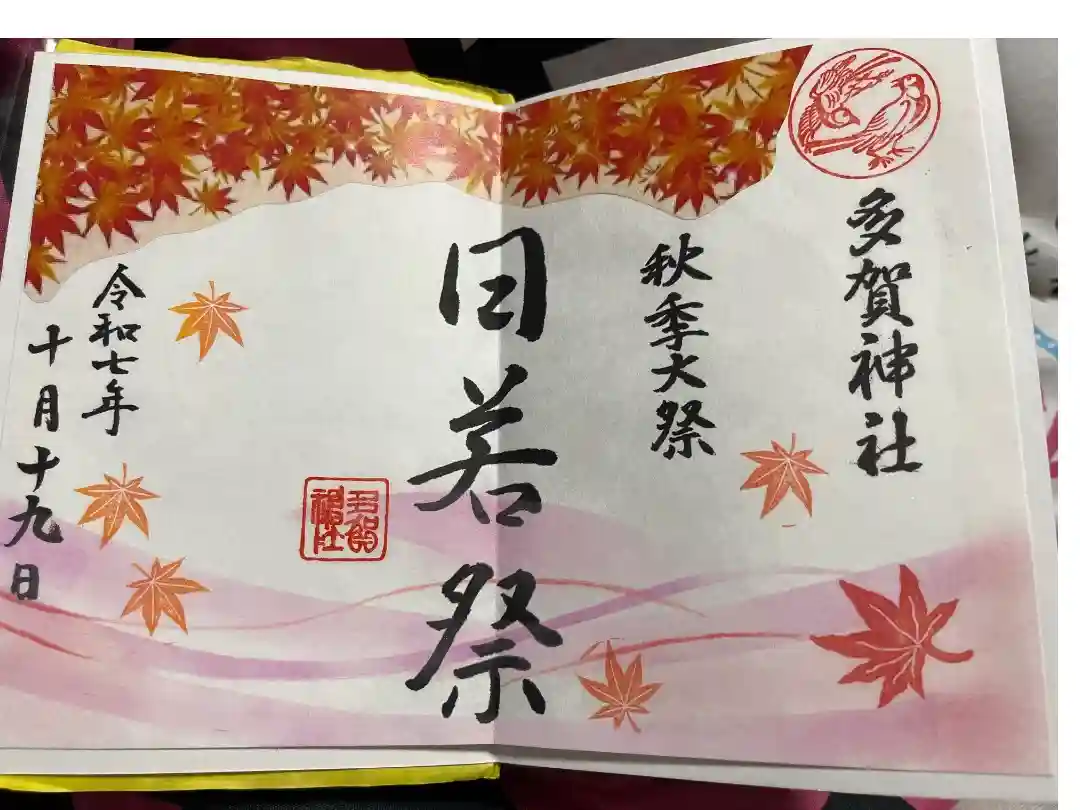 多賀神社
秋季大祭
日若祭
令和七年
十月十九日
多賀
神社